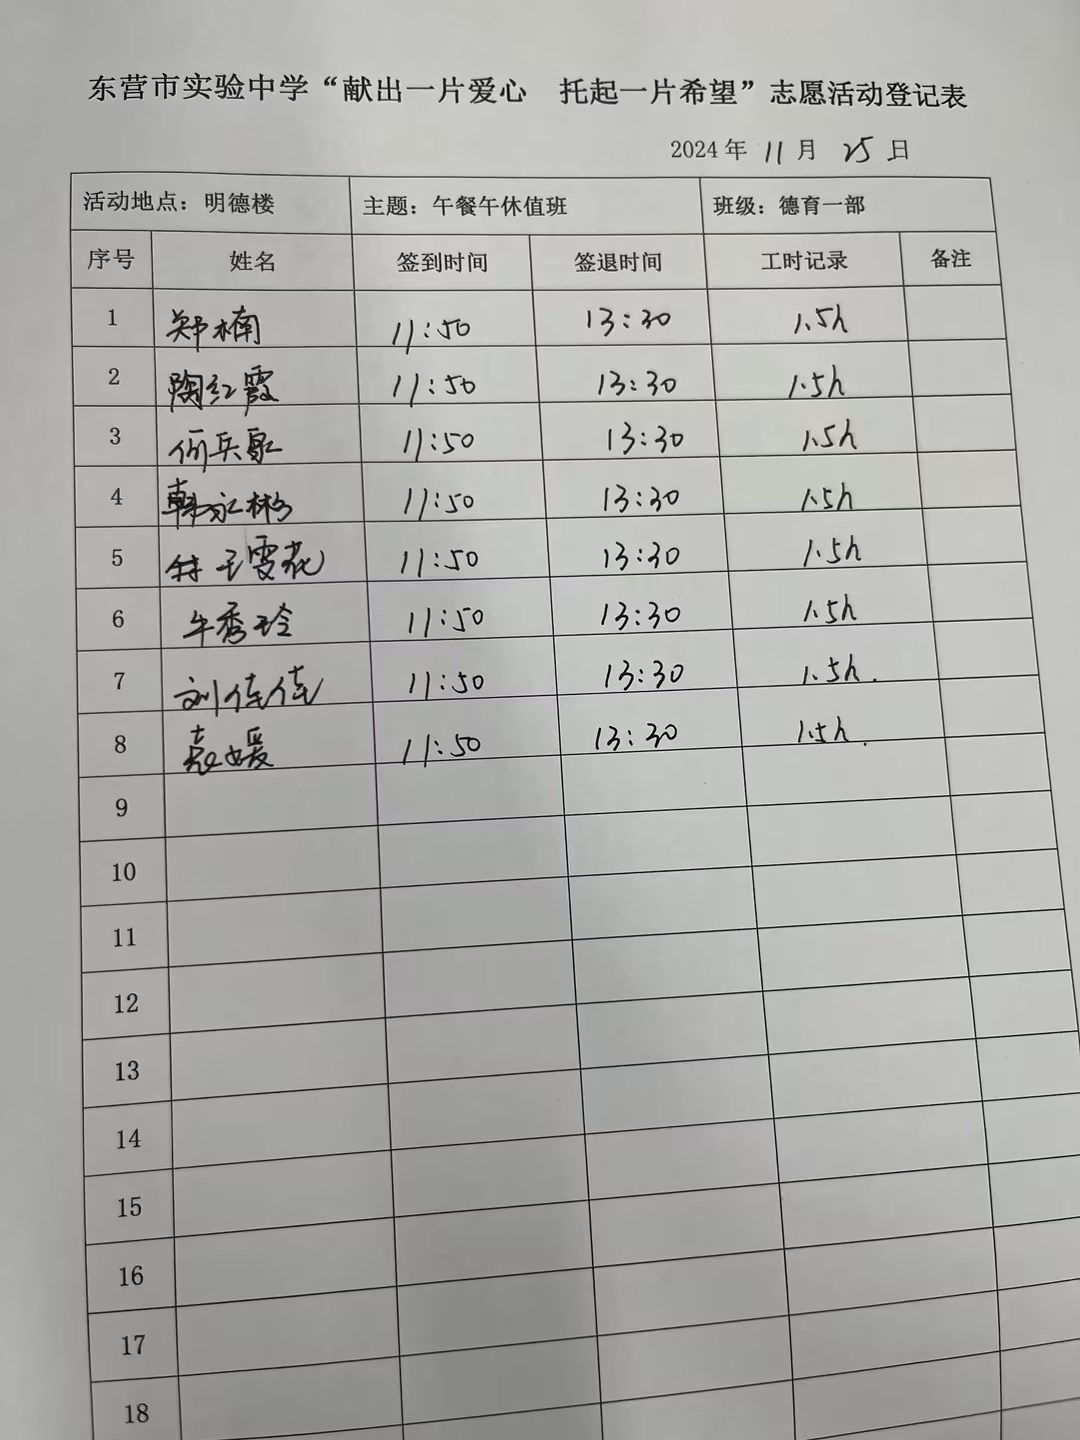 东营市实验中学“献出一片爱心 托起一片希望”志愿活动登记表
2024年 11月 25日
活动地点：明德楼 主题：午餐午休值班 班级：德育一部
序号 姓名 签到时间 签退时间 工时记录 备注
1 郑楠 11:50 13:30 1.5h
2 陶红霞 11:50 13:30 1.5h
3 11:50 13:30 1.5h
4 韩永彬 11:50 13:30 1.5h
5 11:50 13:30 1.5h
6 牛秀玲 11:50 13:30 1.5h
7 刘佳佳 11:50 13:30 1.5h.
8 袁媛 11:50 13:30 1.5h.
9
10
11
12
13
14
15
16
17
18